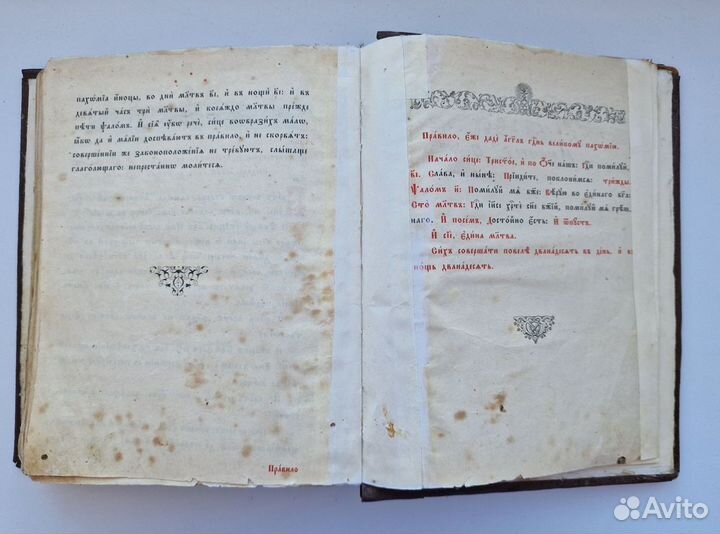 пахѡ́мїа и҆но́цы, во дни̑ мл҃твъ в҃і, и҆ въ нощѝ в҃і: и҆ въ
девѧ́тый ча́съ трѝ мл҃твы, и҆ коєѧ́ждо мл҃твы пре́жде
пѣ́ти ѱало́мъ. И҆ сїѧ̑ ᲂу҆́бѡ речѐ, си́це воѡбрази́хъ ма́лѡ,
ꙗ҆́кѡ да и҆ ма́лїи доспѣва́ютъ въ пра́вило, и҆ не скорбѧ́тъ:
соверше́ннїи же законоположе́нїѧ не тре́бꙋютъ, слы́шаще
глаго́лющаго: непреста́ннѡ моли́тесѧ.
Пра́вило
Пра́вило, є҆́же дадѐ а҆́гг҃лъ гд҇нь вели́комꙋ пахѡ́мїю.
Нача́ло си́це: Трист҃о́е, и҆ по Ѻ҆́ч҃е на́шъ: Гд҇и поми́лꙋй,
в҃і. Сла́ва, и҆ ны́нѣ: Прїиди́те, поклони́мсѧ: три́жды.
Ѱало́мъ н҃: Поми́лꙋй мѧ̀ бж҃е: Вѣ́рꙋю во є҆ди́наго бг҃а:
Сто̀ мл҃твъ: Гд҇и і҆и҃се хрт҇ѐ сн҃е бж҃їй, поми́лꙋй мѧ̀ грѣ́ш-
наго. И҆ посе́мъ, Досто́йно є҆́сть: И҆ ѿпꙋ́стъ.
И҆ сїѐ, є҆ди́на мл҃тва.
Си́хъ соверша́ти повелѣ̀ двана́десѧть въ де́нь, и҆ въ
но́щь двана́десѧть.
Avito